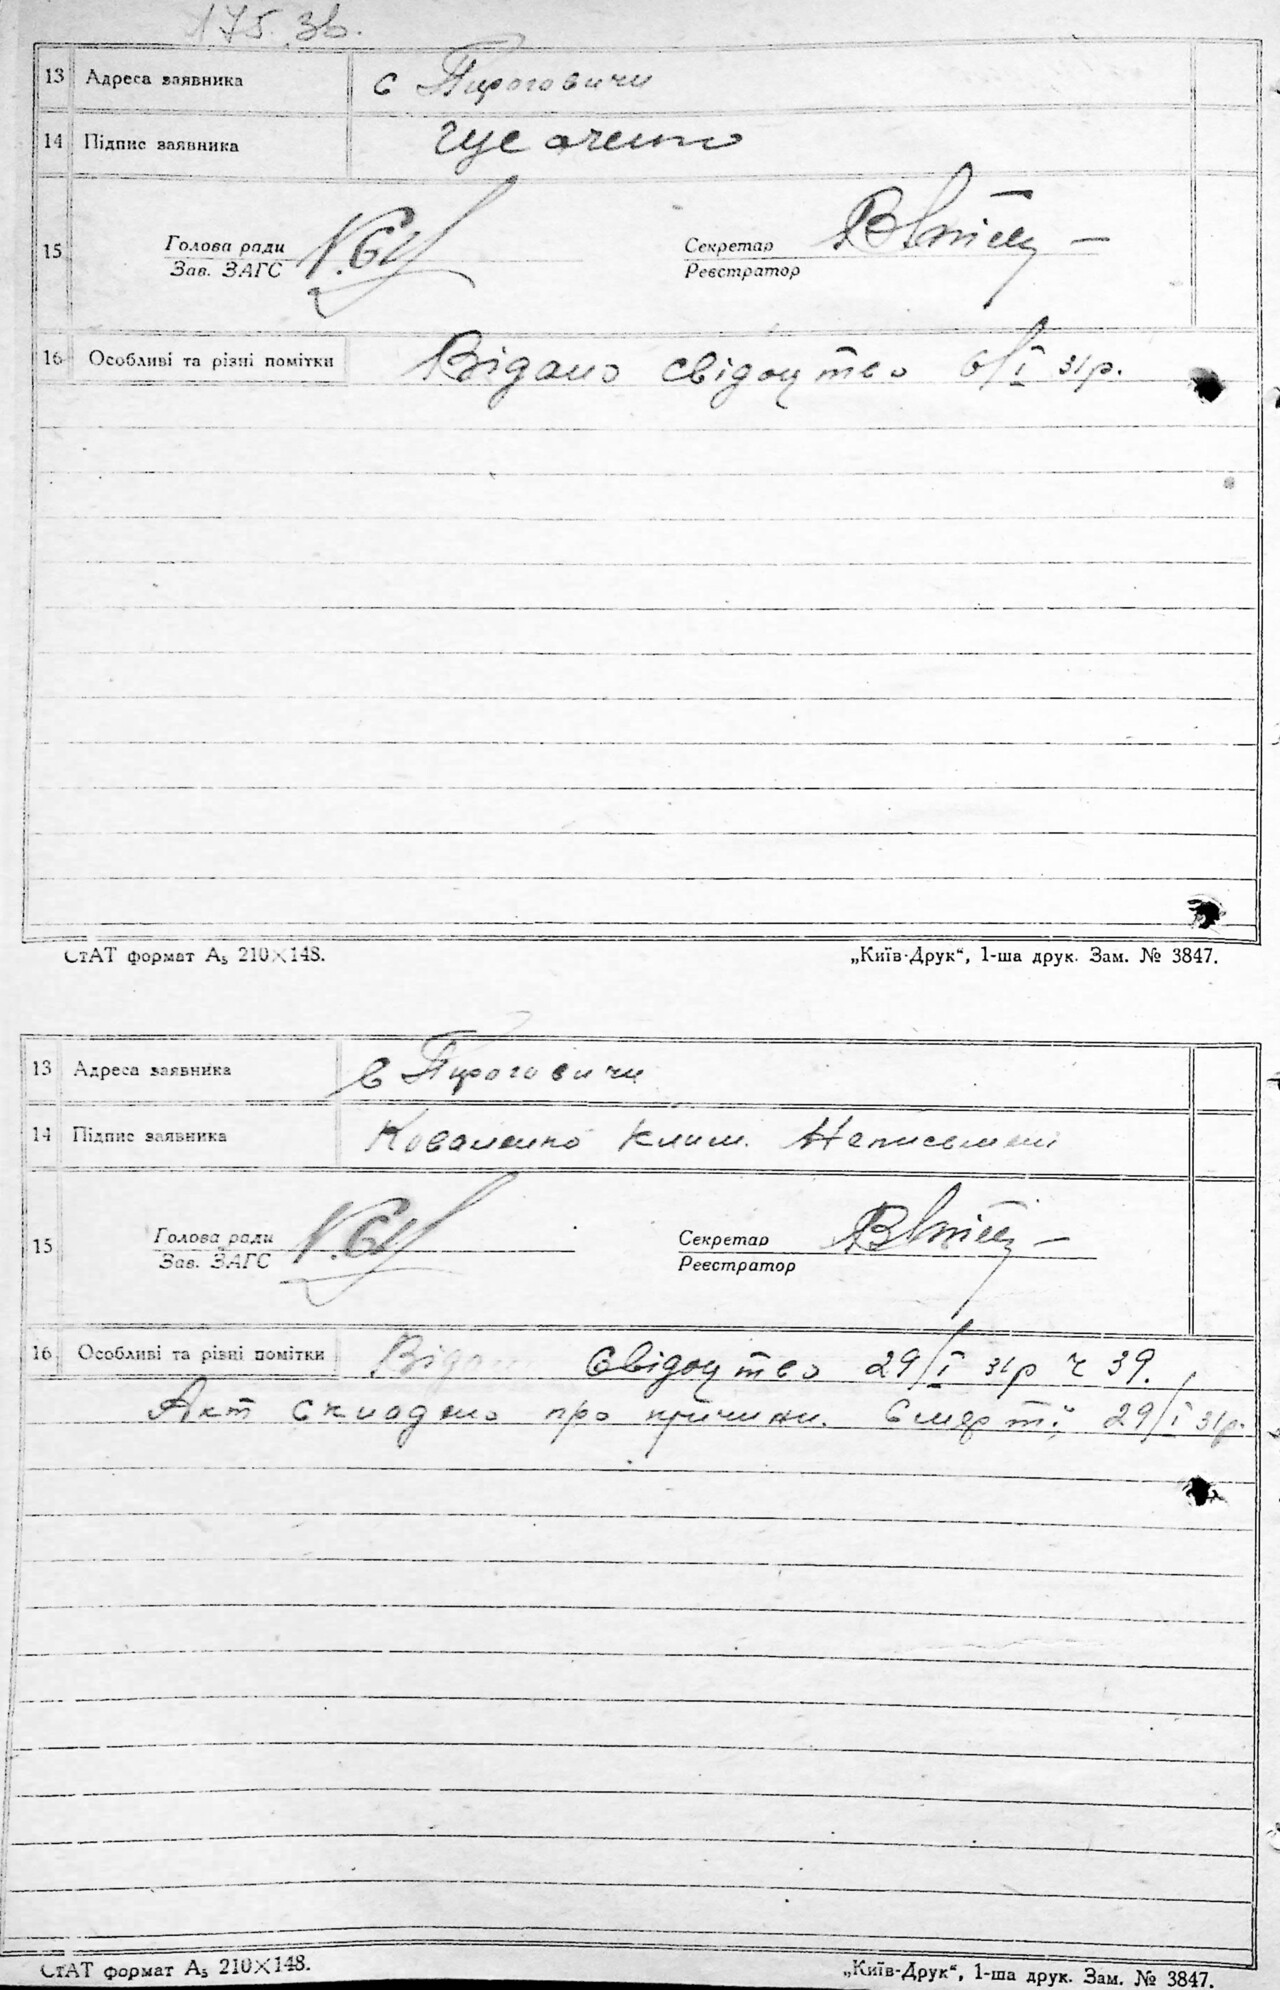 175. зв.
13 Адреса заявника с Пироговичи
14 Підпис заявника
15 Голова ради Секретар
Зав. ЗАГС Реєстратор
16 Особливі та різні помітки Відано свідоцтво 6/I 31р.
СтАТ формат А₅ 210×148. „Київ-Друк“, 1-ша друк. Зам. № 3847.
13 Адреса заявника с Пироговичи
14 Підпис заявника Коваленко Клим. Неписьмені
15 Голова ради Секретар
Зав. ЗАГС Реєстратор
16 Особливі та різні помітки Відано свідоцтво 29/I 31р ч 39.
Акт складено про причини. Смерти 29/I 31р.
СтАТ формат А₅ 210×148. „Київ-Друк“, 1-ша друк. Зам. № 3847.